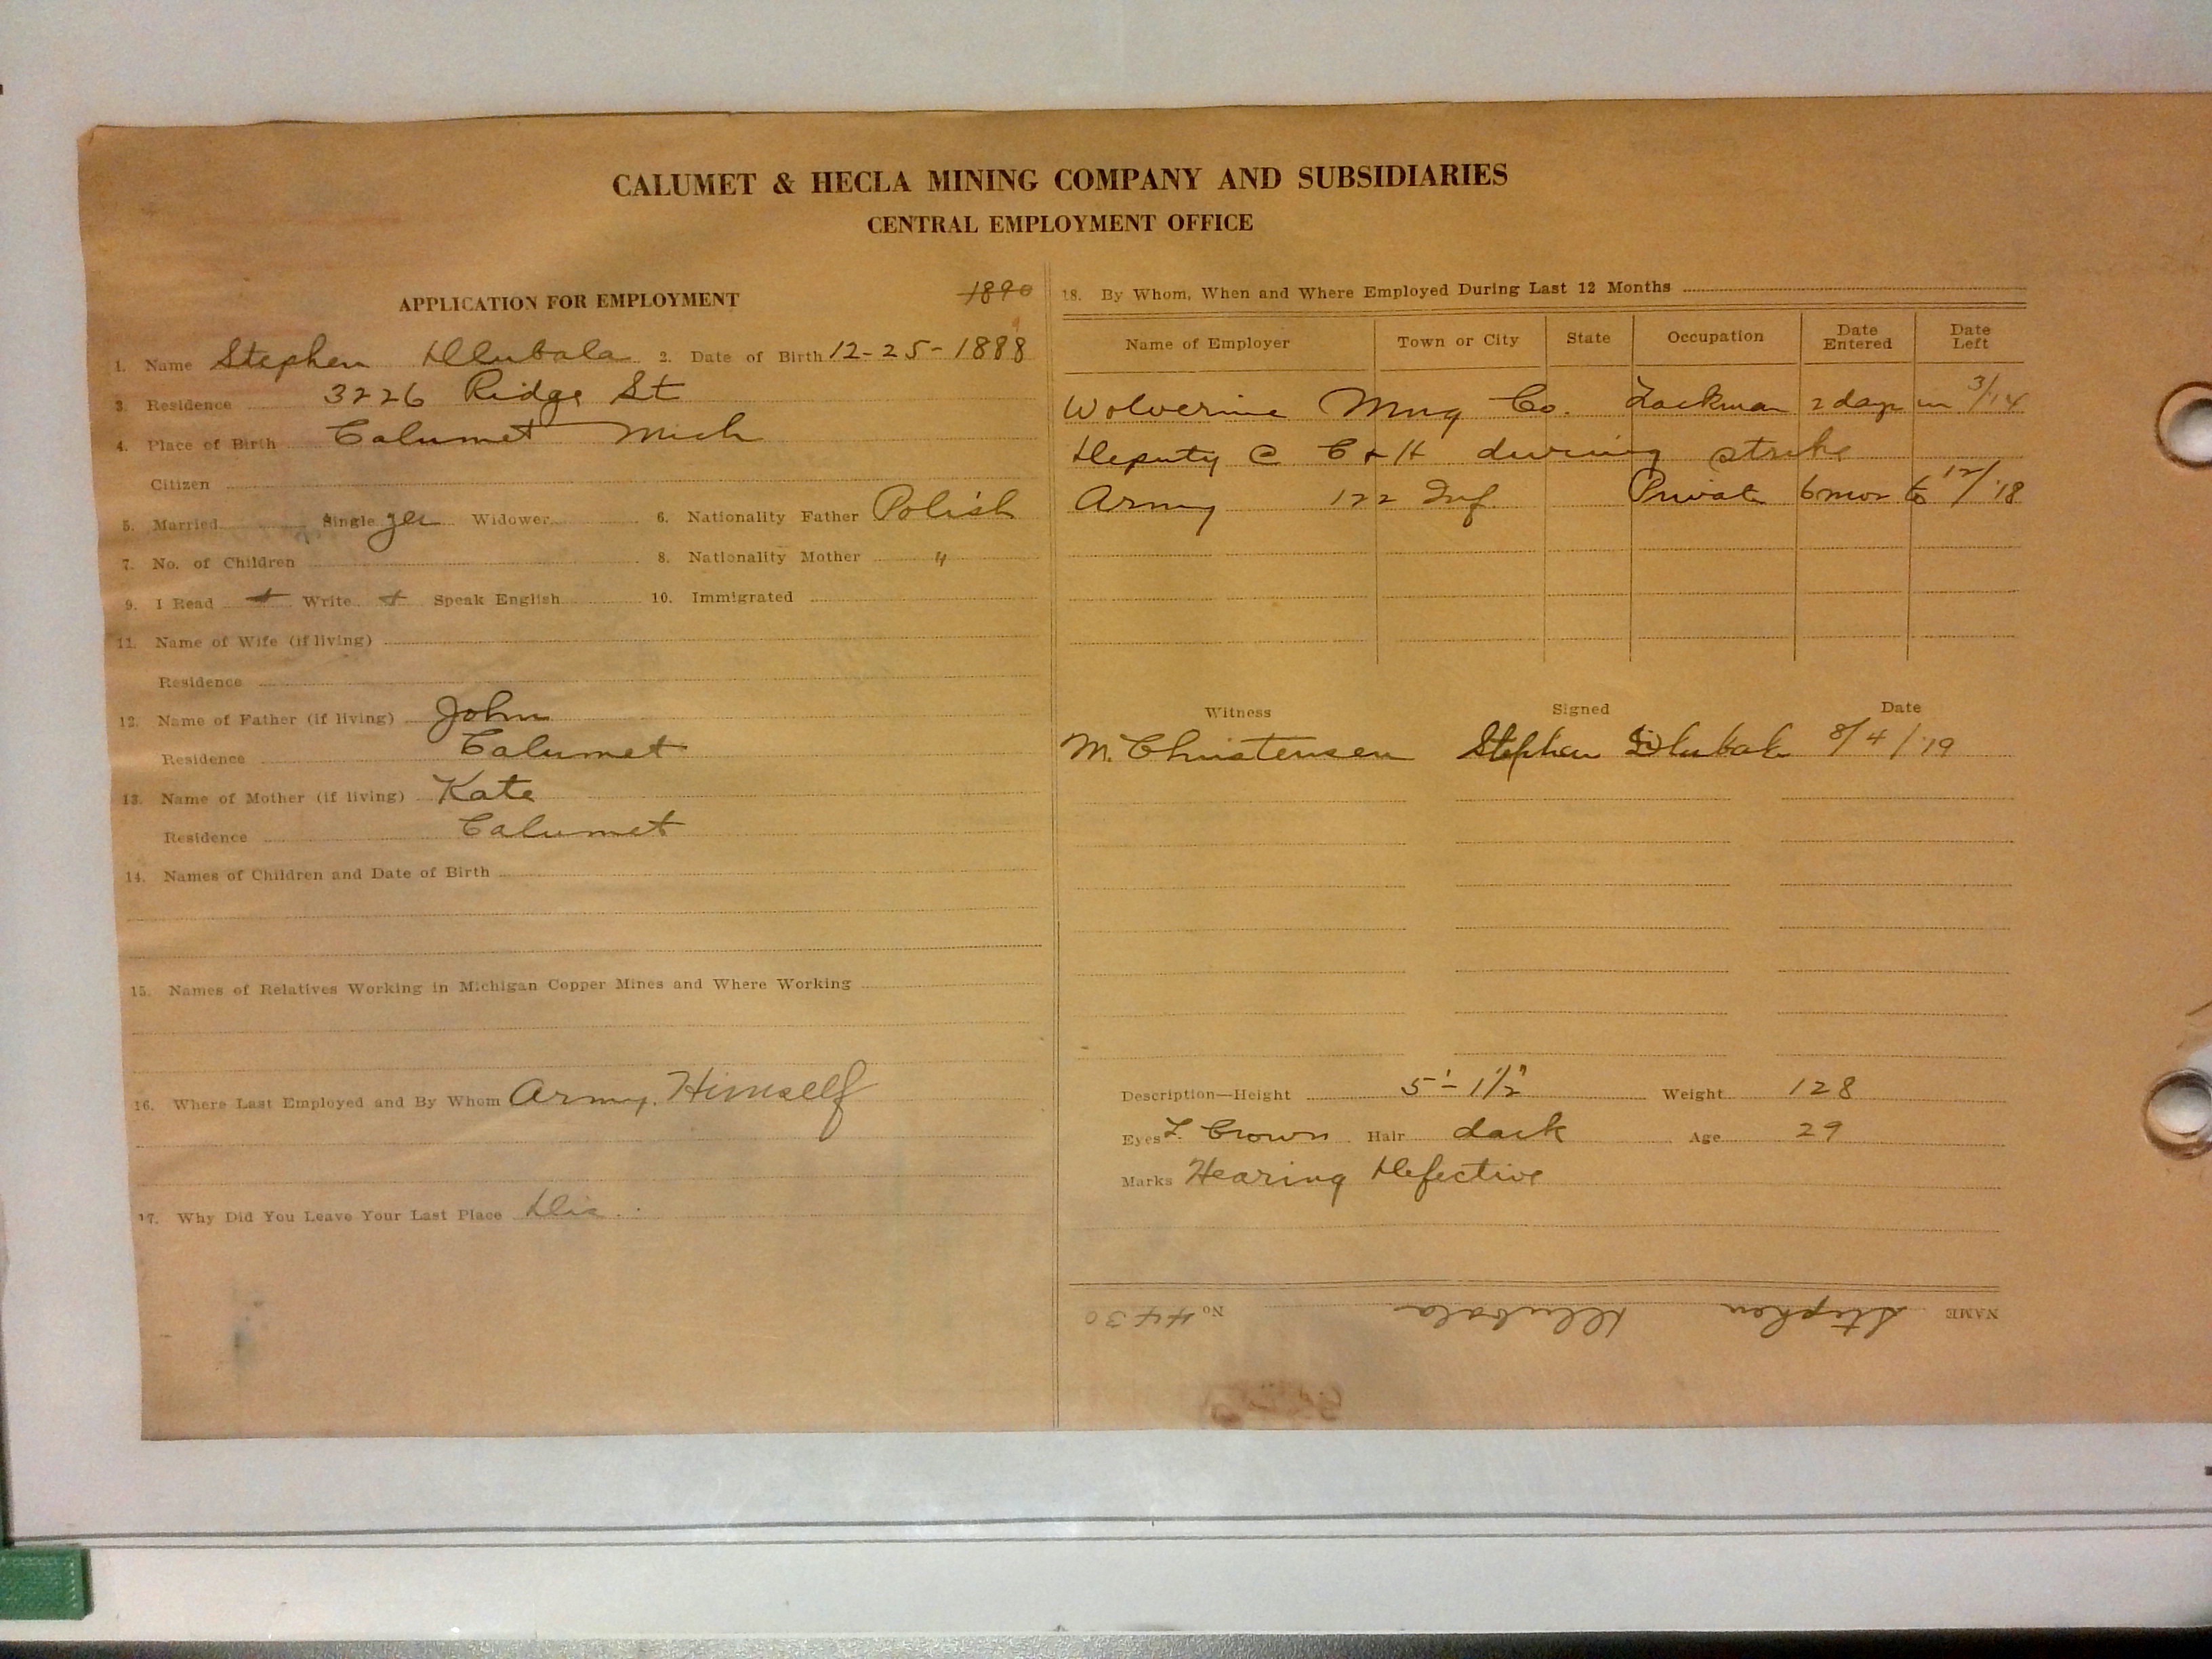 CALUMET & HECLA MINING COMPANY AND SUBSIDIARIES
CENTRAL EMPLOYMENT OFFICE
APPLICATION FOR EMPLOYMENT
1890
1. Name Stephen Dlubala 2. Date of Birth 12-25-1888
9
3. Residence 3226 Ridge St
4. Place of Birth Calumet Mich
Citizen
5. Married Single yes Widower 6. Nationality Father Polish
7. No. of Children 8. Nationality Mother "
9. I Read + Write + Speak English 10. Immigrated
11. Name of Wife (if living)
Residence
12. Name of Father (if living) John
Residence Calumet
13. Name of Mother (if living) Kate
Residence Calumet
14. Names of Children and Date of Birth
15. Names of Relatives Working in Michigan Copper Mines and Where Working
16. Where Last Employed and By Whom Army. Himself
17. Why Did You Leave Your Last Place Dis.
18. By Whom, When and Where Employed During Last 12 Months
Name of Employer Town or City State Occupation Date Entered Date Left
Wolverine Mng Co. 2 days in 3/14
Deputy @ C & H during strike
Army 122 Inf. Private 6 mos to 12/18
Witness Signed Date
M. Christensen Stephen 8/4/19
Description—Height 5'-1½" Weight 128
Eyes L. Brown Hair dark Age 29
Marks Hearing Defective
NAME Stephen Dlubala No. 4430